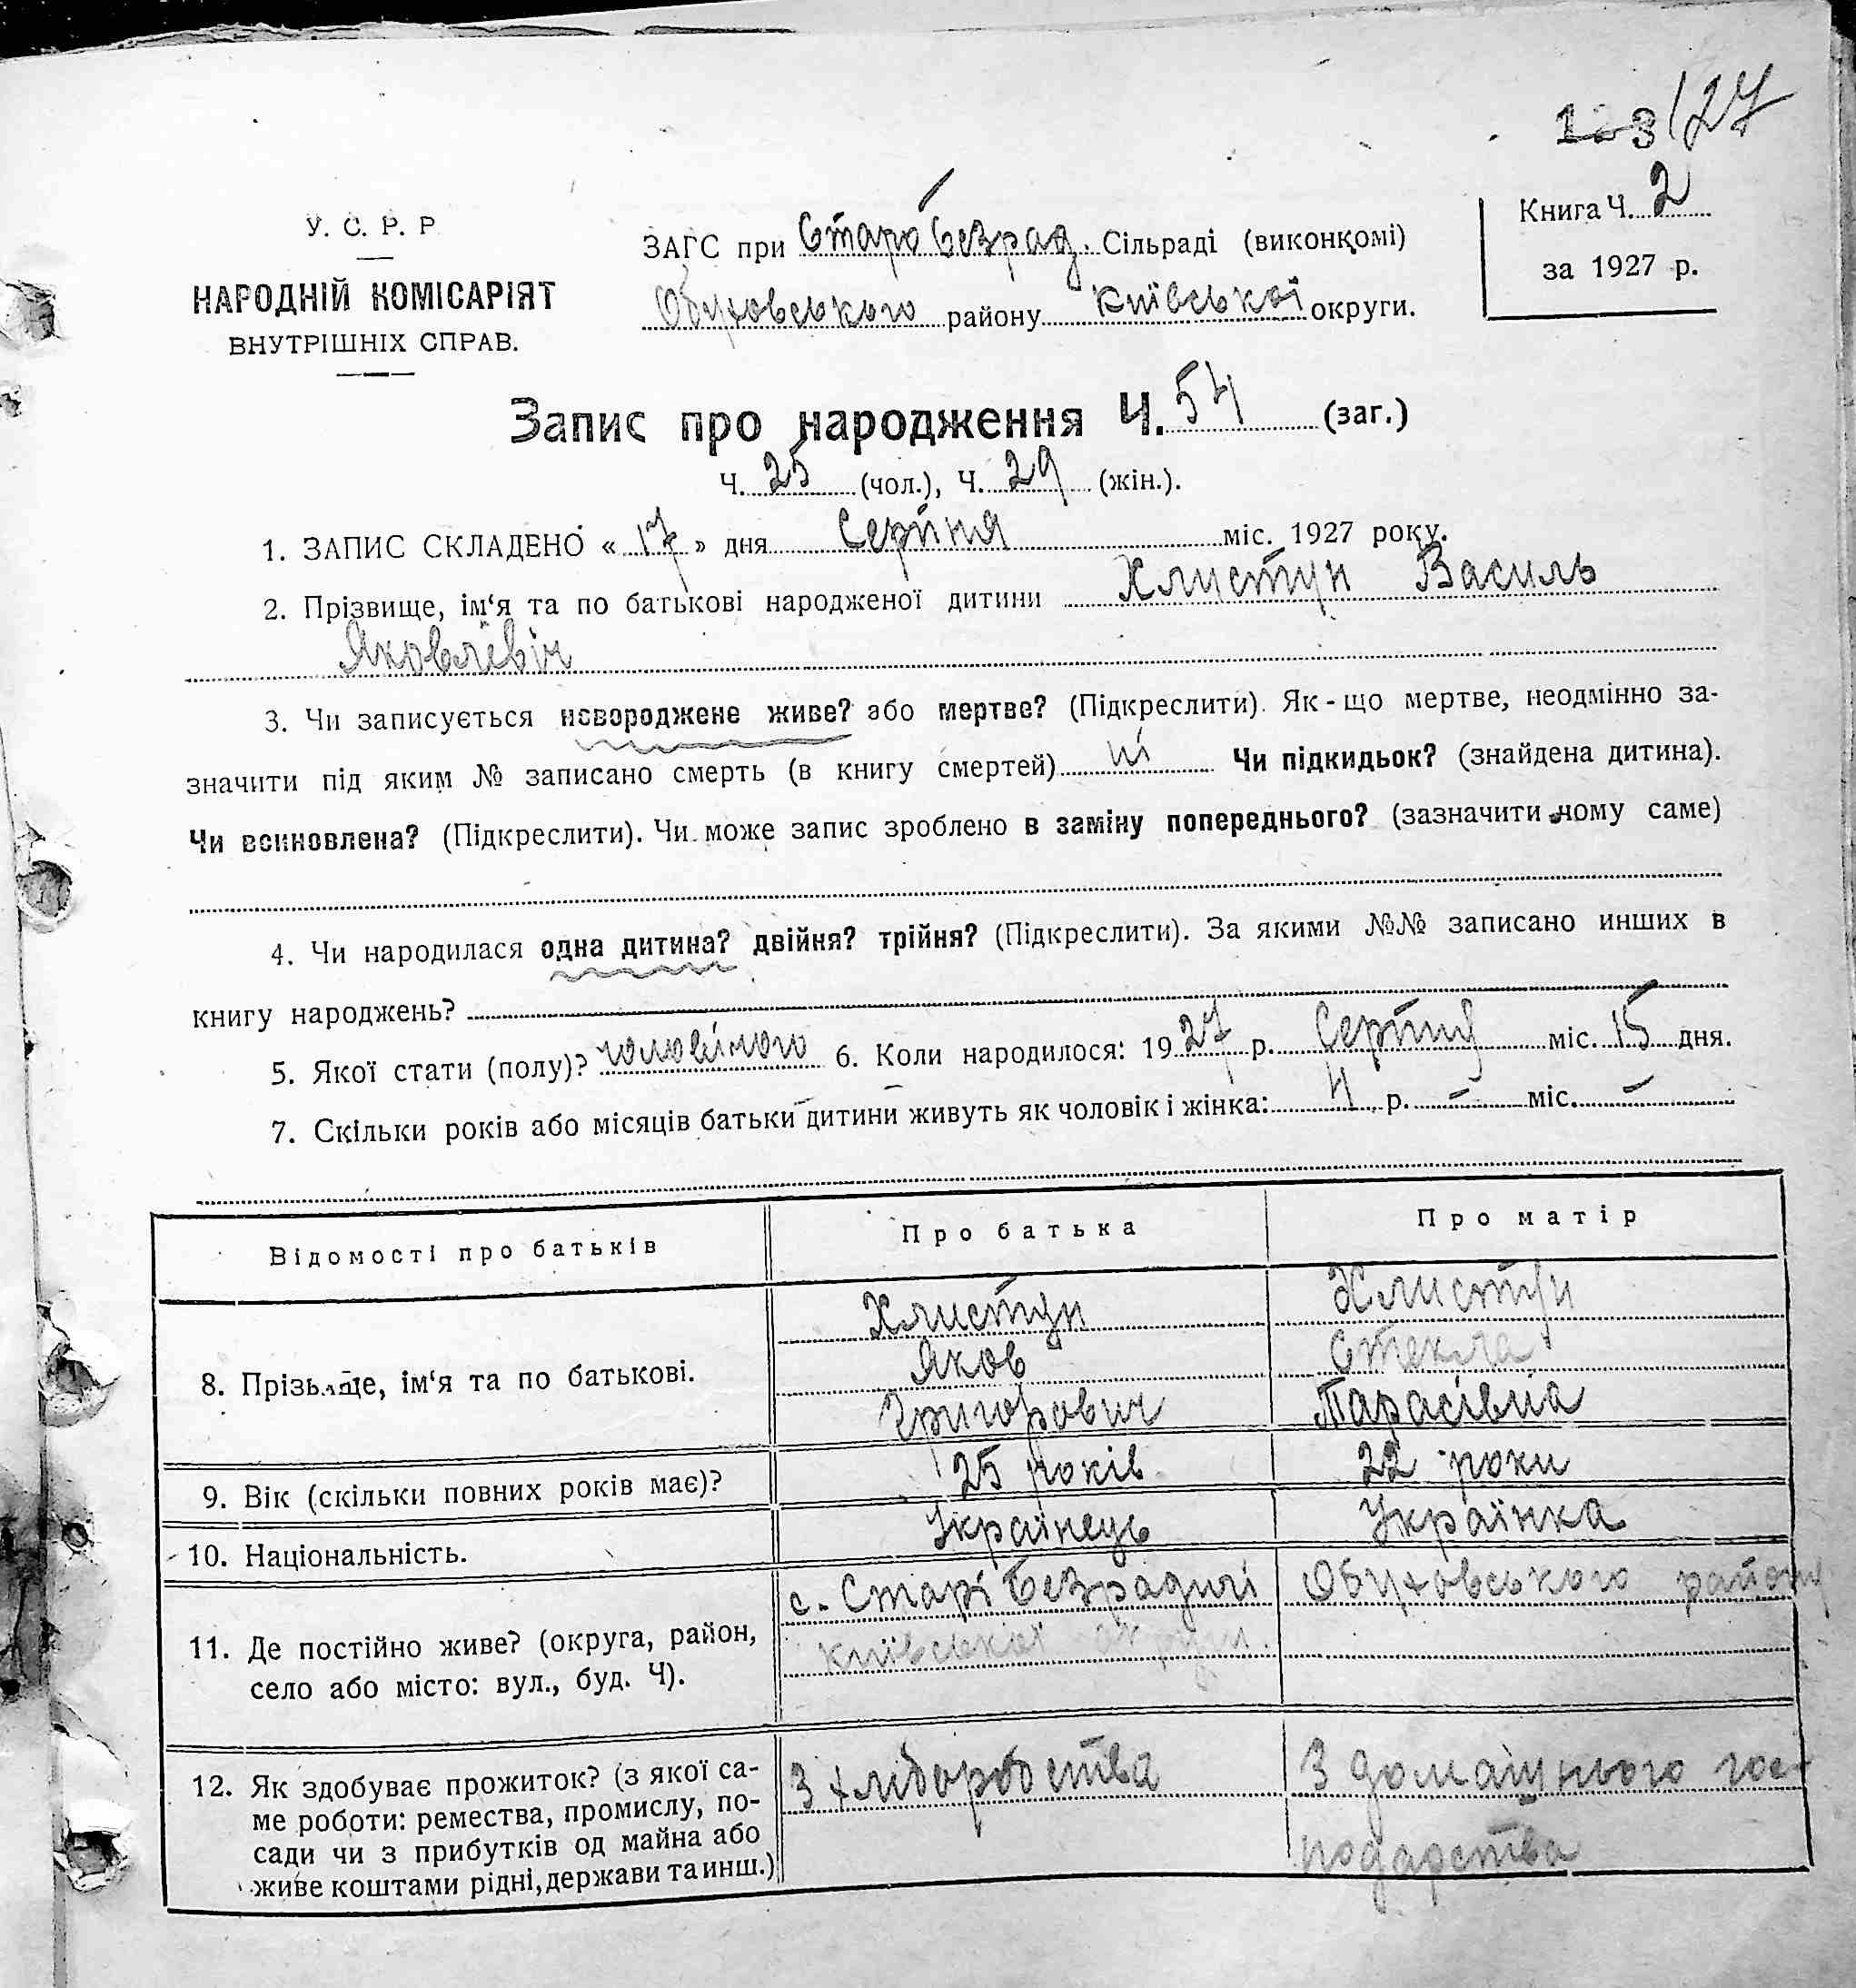 123 127
У. С. Р. Р
НАРОДНІЙ КОМІСАРІЯТ
ВНУТРІШНІХ СПРАВ.
ЗАГС при Старо Безрад. Сільраді (виконкомі)
Обуховського району Київської округи.
Книга Ч. 2
за 1927 р.
Запис про народження Ч. 54 (заг.)
Ч. 25 (чол.), Ч. 29 (жін.).
1. ЗАПИС СКЛАДЕНО « 17 » дня Серпня міс. 1927 року.
2. Прізвище, ім‘я та по батькові народженої дитини Хлистун Василь
Яковлевіч
3. Чи записується новороджене живе? або мертве? (Підкреслити). Як-що мертве, неодмінно за-
значити під яким № записано смерть (в книгу смертей) ні Чи підкидьок? (знайдена дитина).
Чи всиновлена? (Підкреслити). Чи може запис зроблено в заміну попереднього? (зазначити чому саме)
4. Чи народилася одна дитина? двійня? трійня? (Підкреслити). За якими №№ записано инших в
книгу народжень?
5. Якої стати (полу)? чоловічого 6. Коли народилося: 1927 р. Серпня міс. 15 дня.
7. Скільки років або місяців батьки дитини живуть як чоловік і жінка: 4 р. – міс. –
Відомості про батьків Про батька Про матір
8. Прізвище, ім‘я та по батькові.
Хлистун
Яков
Григорович
Хлистун
Стекла
Тарасівна
9. Вік (скільки повних років має)? 25 років 22 роки
10. Національність. Українець Українка
11. Де постійно живе? (округа, район,
село або місто: вул., буд. Ч).
с. Старі Безрадичі Обуховського району
Київської округи.
12. Як здобуває прожиток? (з якої са-
ме роботи: ремества, промислу, по-
сади чи з прибутків од майна або
живе коштами рідні, держави та инш.)
З хліборобства
З домашнього гос-
подарства